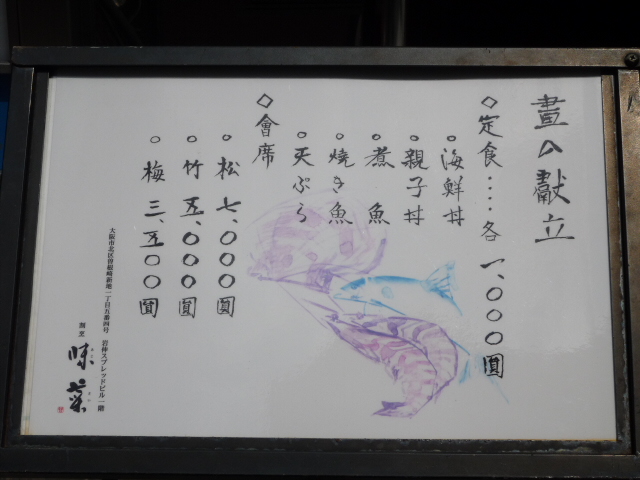 晝の獻立
◇定食‥‥各一、〇〇〇圓
◦海鮮丼
◦親子丼
◦煮魚
◦焼き魚
◦天ぷら
◇會席
◦松七、〇〇〇圓
◦竹五、〇〇〇圓
◦梅三、五〇〇圓
大阪市北区曽根崎新地一丁目五番四号 岩伸スプレッドビル一階
割烹
味菜